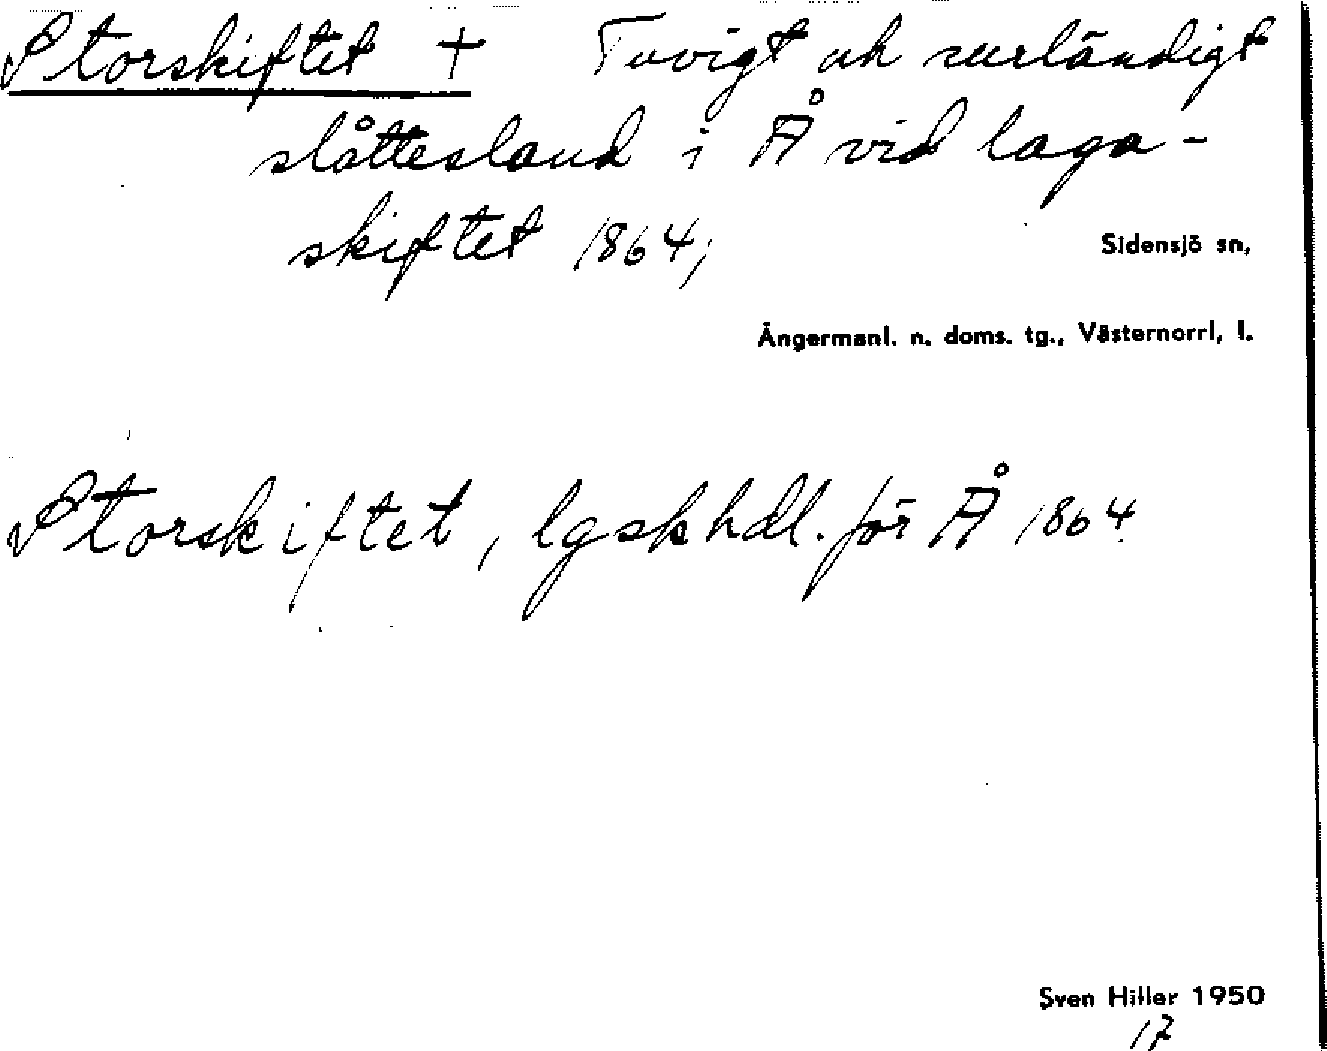 Storskiftet + Tuvigt och surländigt
slåttesland i Å vid laga-
skiftet 1864;
Sidensjö sn,
Ångermanl. n. doms. tg., Västernorrl, l.
Storskiftet, lgskhdl. för Å 1864.
Sven Hiller 1950
17